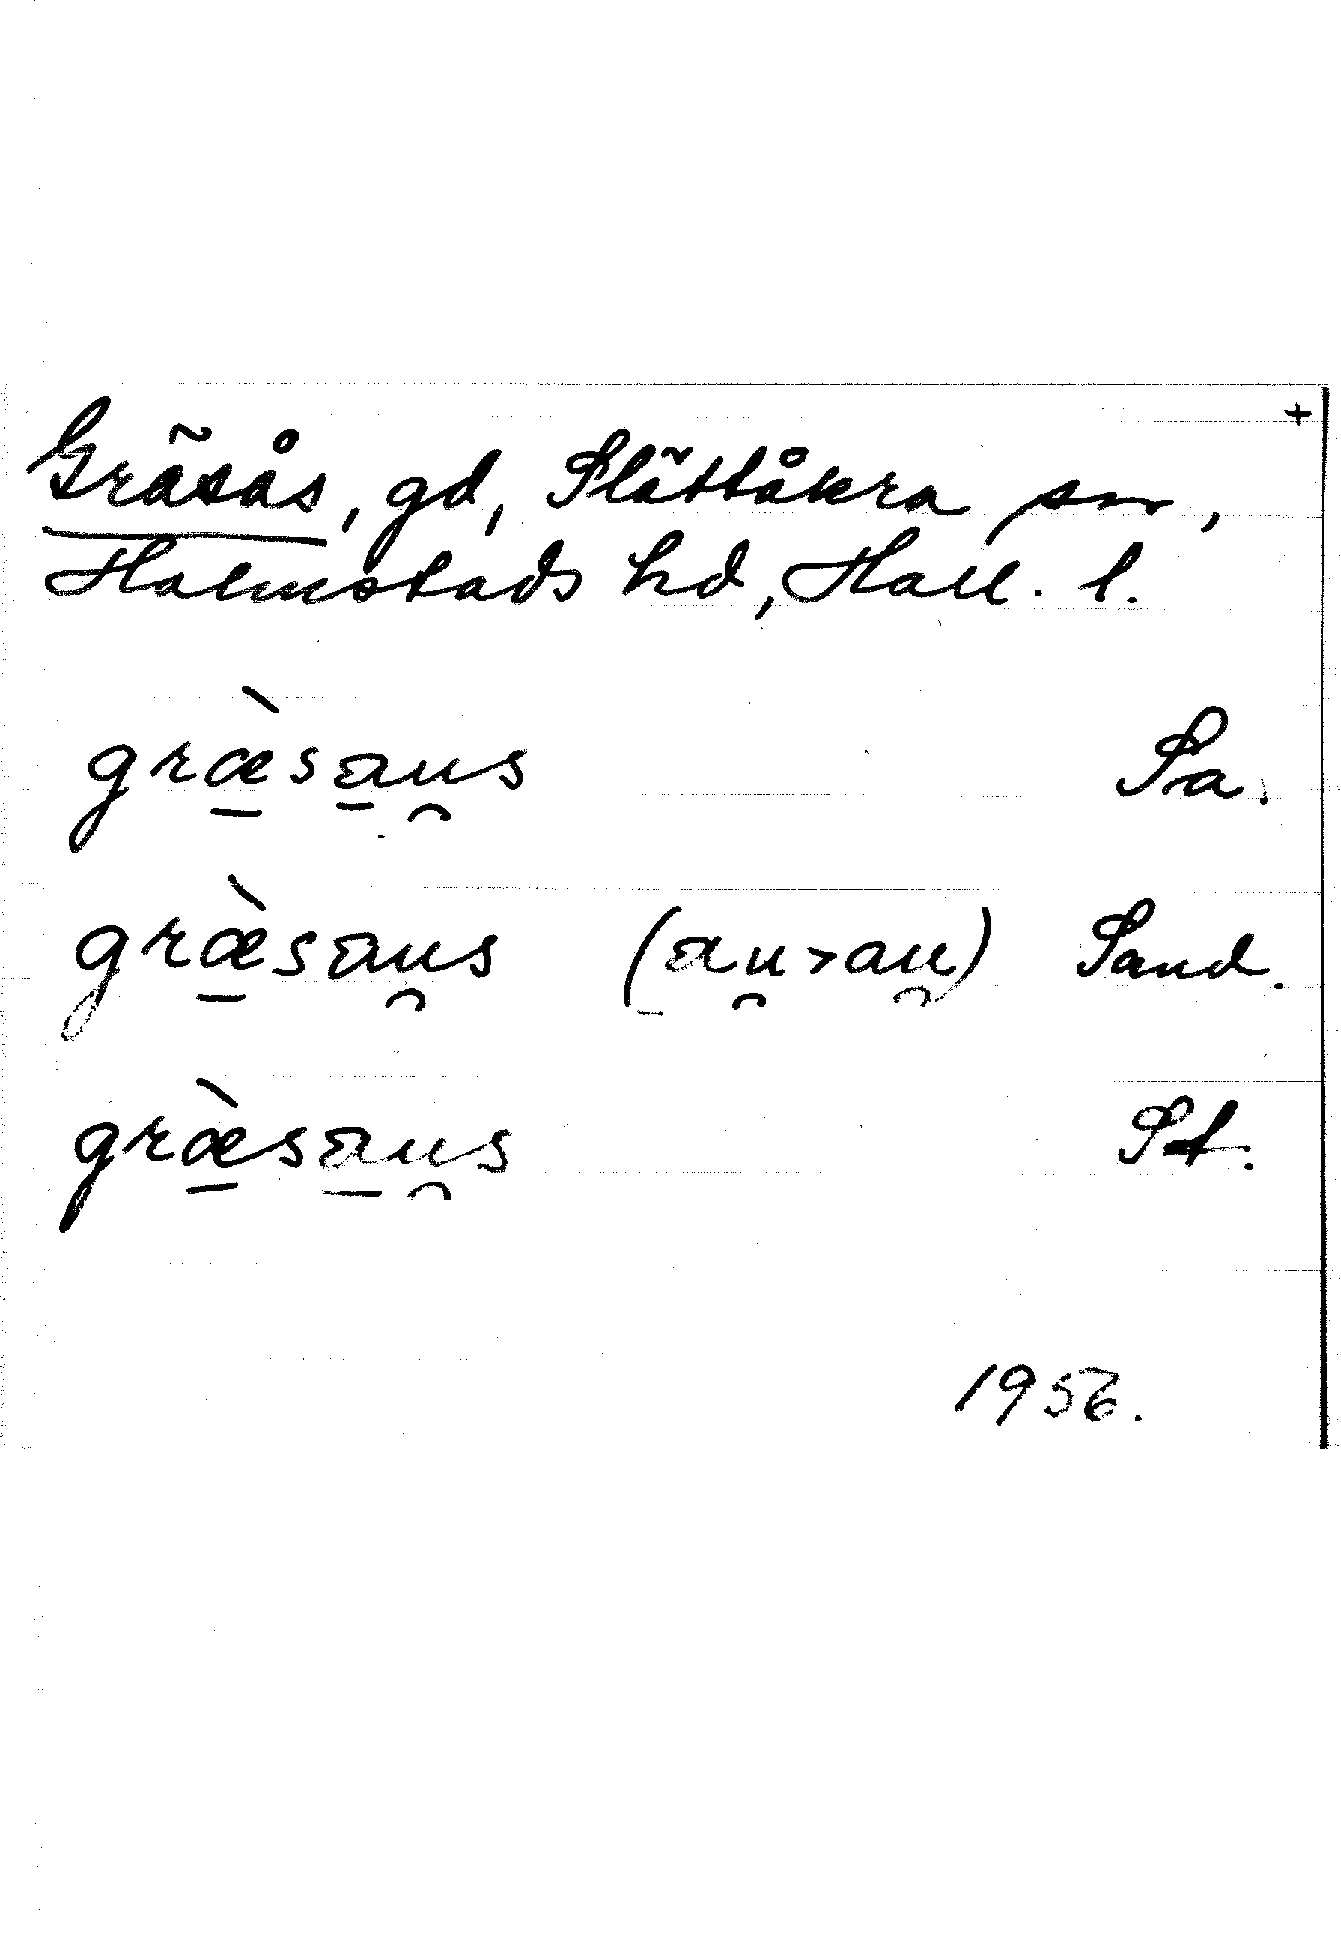 +
Gräsås, gd, Slättåkra sn,
Halmstads hd, Hall. l.
græ̠̀sa̠u̯s Sa.
græ̠̀sau̯s (a̠u̯>au̯) Sand.
græ̠̀sa̠u̯s St.
1956.